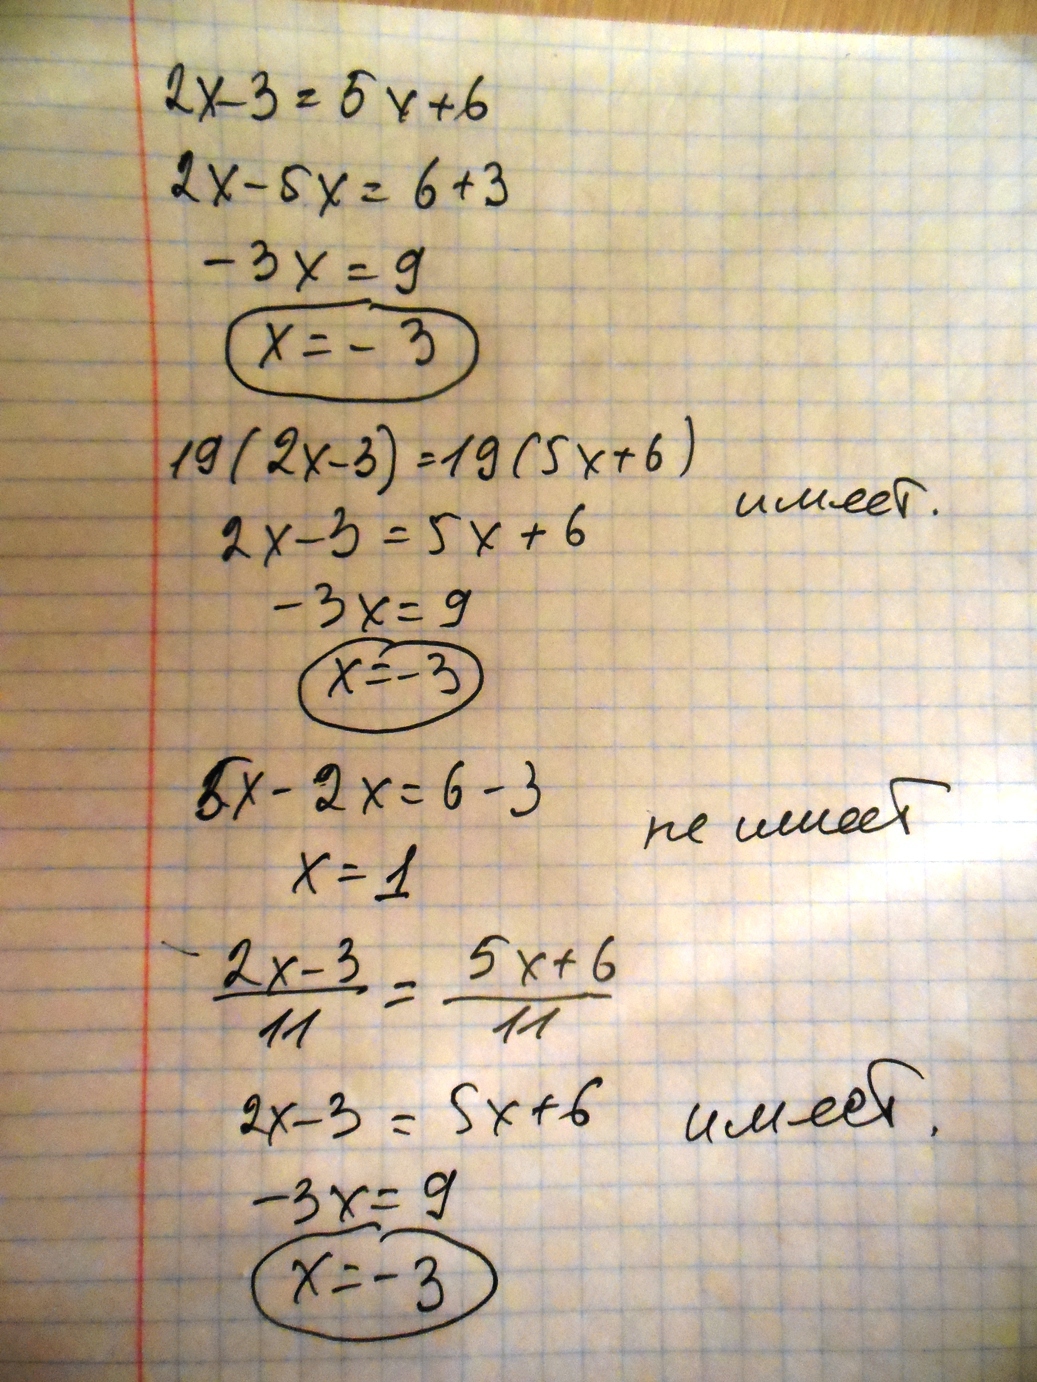 2x-3=5x+6
2x-5x=6+3
-3x=9
x=-3
19(2x-3)=19(5x+6)
имеет.
2x-3=5x+6
-3x=9
x=-3
5x-2x=6-3
не имеет
x=1
2x-3/11 = 5x+6/11
2x-3=5x+6 имеет.
-3x=9
x=-3